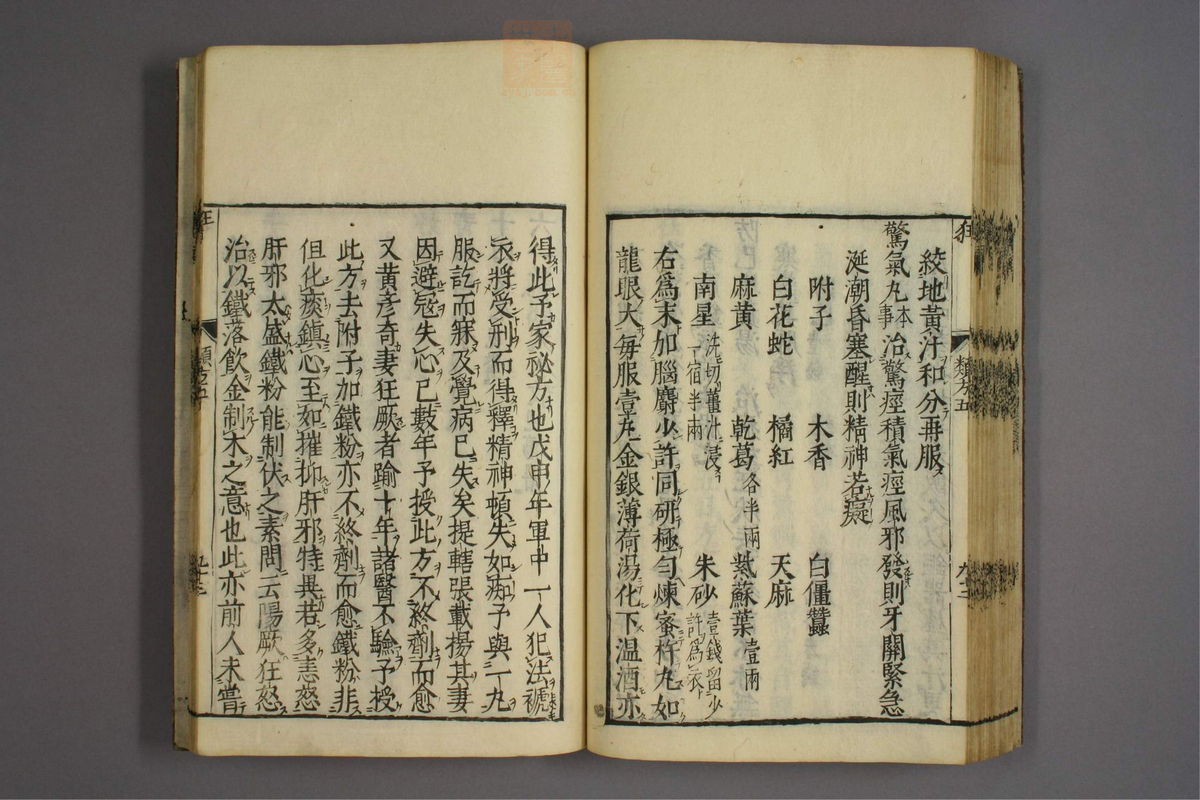 絞地黃汁和分再服
驚氣丸本事治驚癋積氣癋風邪發則牙關緊急
涎潮昏塞醒則精神若癡
附子 木香 白僵蠶
白花蛇 橘紅 天麻
麻黃 乾葛各半兩 紫蘇葉壹兩
南星洗切薑汁浸一宿半兩 朱砂壹錢留少許為衣
右爲末加腦麝少許同研極勻煉蜜杵丸如
龍眼大每服壹丸金銀薄荷湯化下温酒亦
得此予家祕方也戊申年軍中一人犯法褫
衣將受刑而得釋精神頓失如痴予與一丸
服訖而寐及覺病已失矣提轄張載揚其妻
因避冦失心已數年予授此方不終劑而愈
又黃彥奇妻狂厥者踰十年諸醫不驗予授
此方去附子加鐵粉亦不終劑而愈鐵粉非
但化痰鎮心至如摧抑肝邪特異若多恚怒
肝邪太盛鐵粉能制伏之素問云陽厥狂怒
治以鐵落飲金制木之意也此亦前人未嘗
狂
類方五